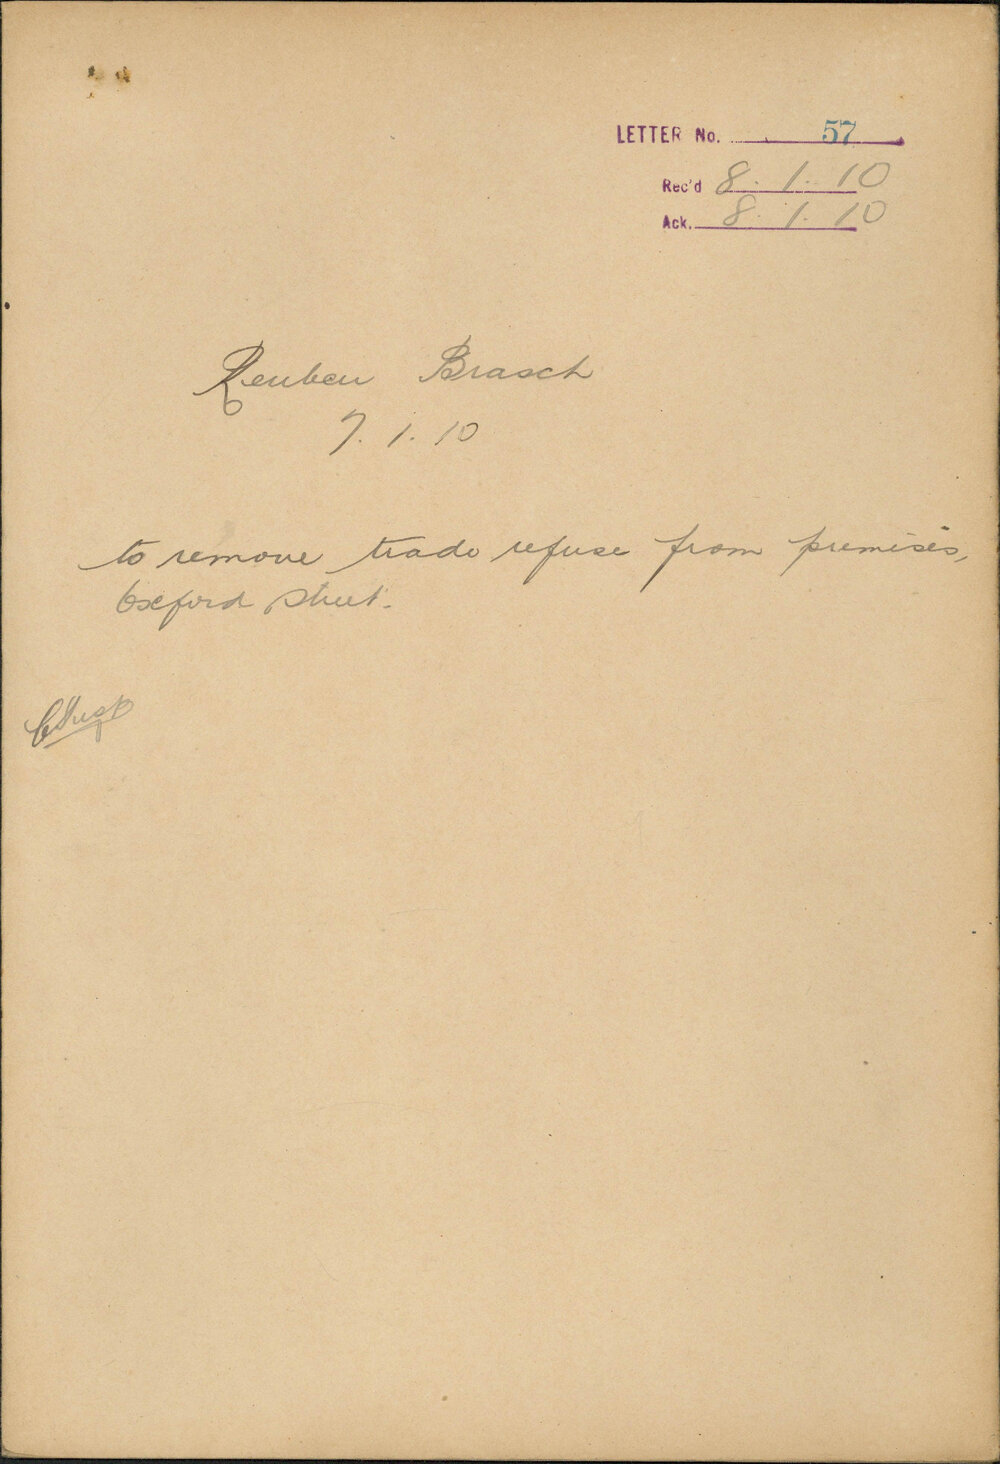 LETTER No. 57
Rec'd 8. 1. 10
Ack. 8. 1. 10
Reuben Brasch
7. 1. 10
to remove trade refuse from premises,
Oxford Street.